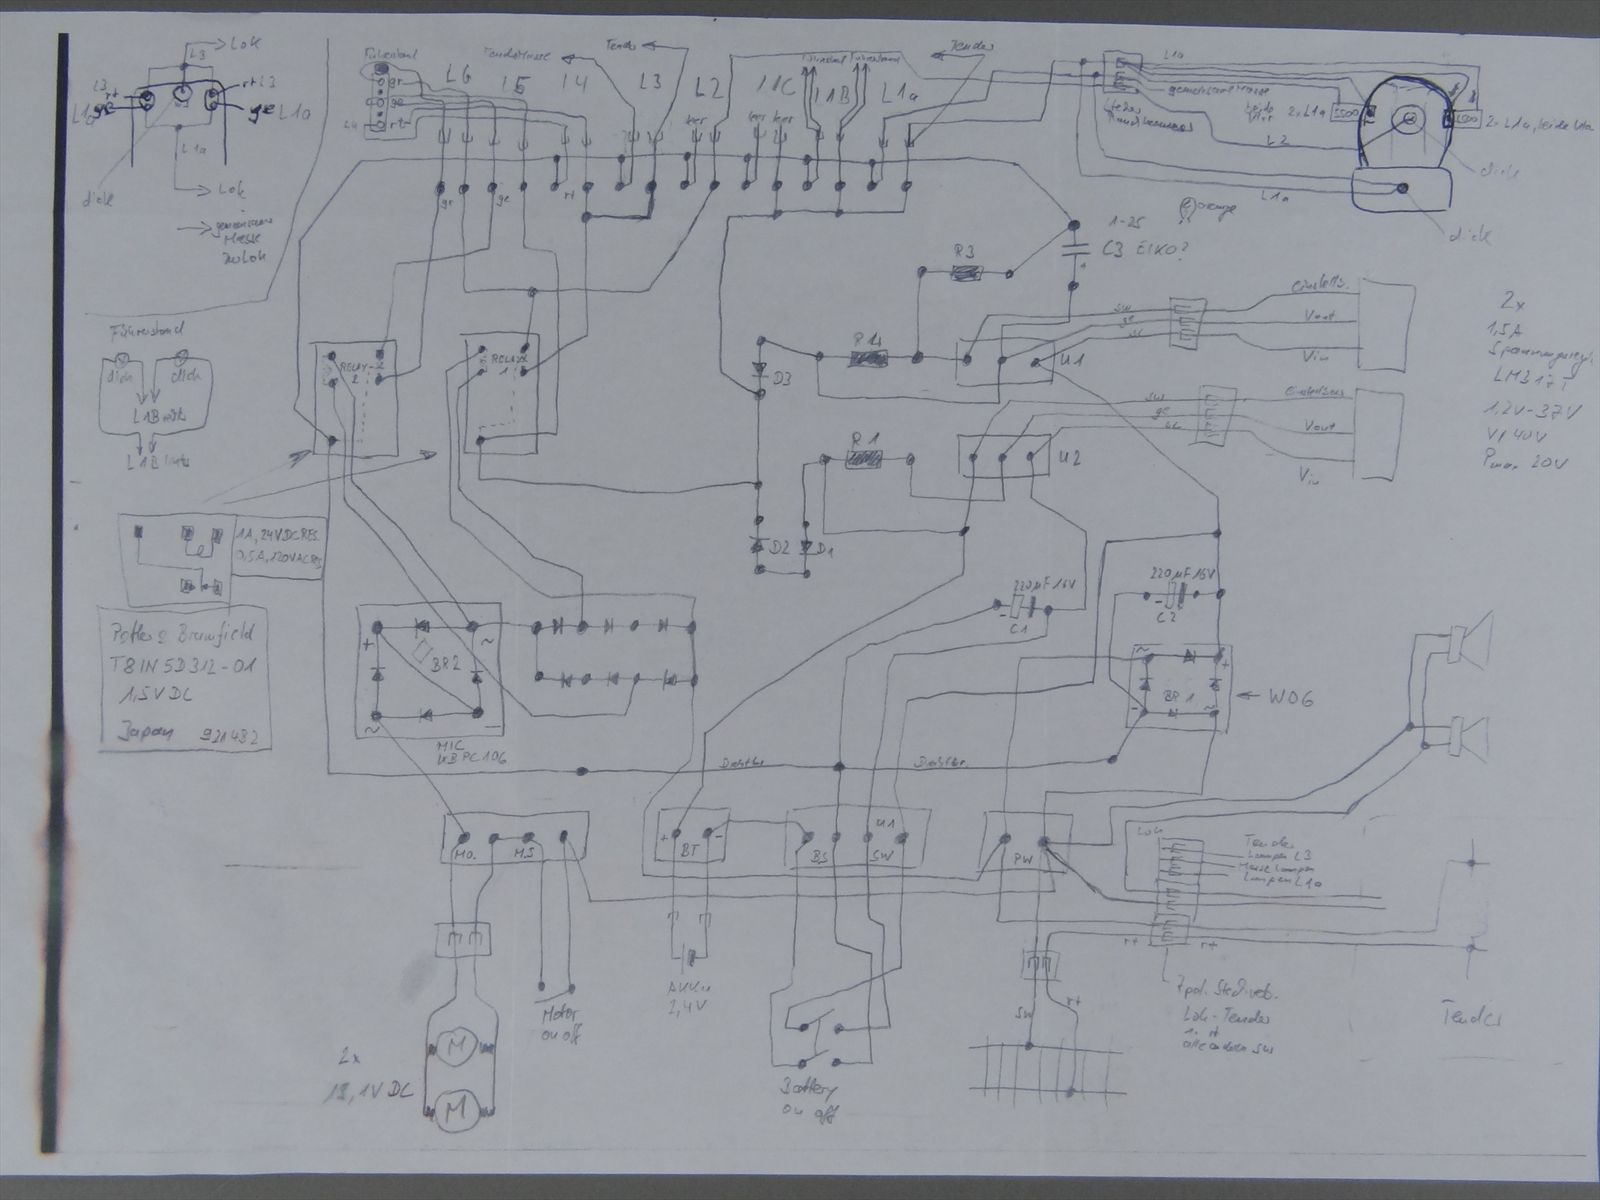 Lok
L3
L3
rt
rt L3
L1a
ge
ge L10
L1a
dick
Lok
gemeinsame
Masse
zu Lok
Führerstand
gr
ge
L4
rt
L6
L5
L4
L3
L2
L1C
L1B
L1a
Tender
Tender
leer
leer
leer
gr
ge
rt
L1a
gemeinsame Masse
2x L1a
L2
L1a
2x L1a, beide L1a
dick
dick
orange
1-25
C3 ElKO?
R3
R14
D3
U1
R1
U2
D2
D1
sw
ge
sw
ge
Vout
Vin
Vout
Vin
2x
1,5A
LM317T
1,2V-37V
VI 40V
Pmax 20V
Führerstand
dick
dick
L1B rechts
L1B links
RELAY-
2
RELAY-
1
1A, 24VDC RES.
0,5A, 120VAC RES.
Potter & Brumfield
T81N5D312-01
1,5V DC
Japan 921432
+
~
BR2
~
-
MIC
KBPC106
220µF 16V
-
C1
220µF 16V
-
C2
+
BR1
-
~
W06
Drahtbr.
Drahtbr.
MO.
M.S
+
BT
-
BS
U1
SW
PW
Lok
Tender
Lampen L3
Masse Lampen
Lampen L1a
rt
rt
7pol. Steckverb.
Lok-Tender
1. rt
alle anderen sw
Tender
sw
rt
Motor
on off
AKKu
2,4V
Battery
on off
2x
18,1V DC
M
M